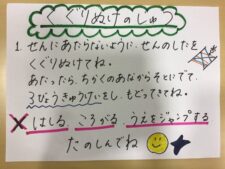 くぐりぬけのしゅう
1. せんにあたらないように、せんのしたを
くぐりぬけてね。
あたったら、ちかくのあなからそとにでて、
3びょうきゅうけいをし、もどってきてね。
✕ はしる、ころがる、うえをジャンプする
たのしんでね